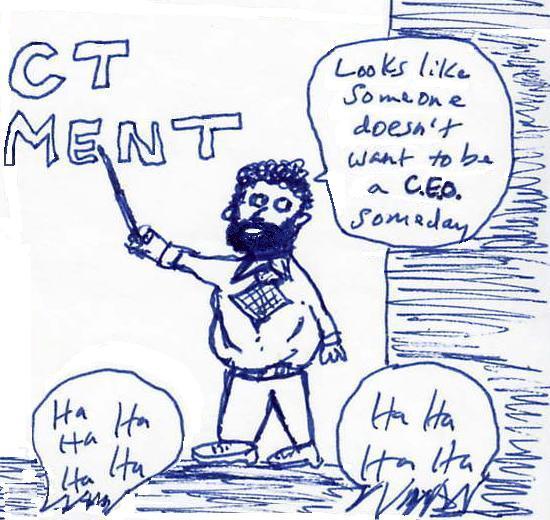 CT
MENT
Looks like
Someone
doesn't
want to be
a C.E.O.
someday
Ha Ha
Ha
Ha Ha
Ha Ha
Ha Ha